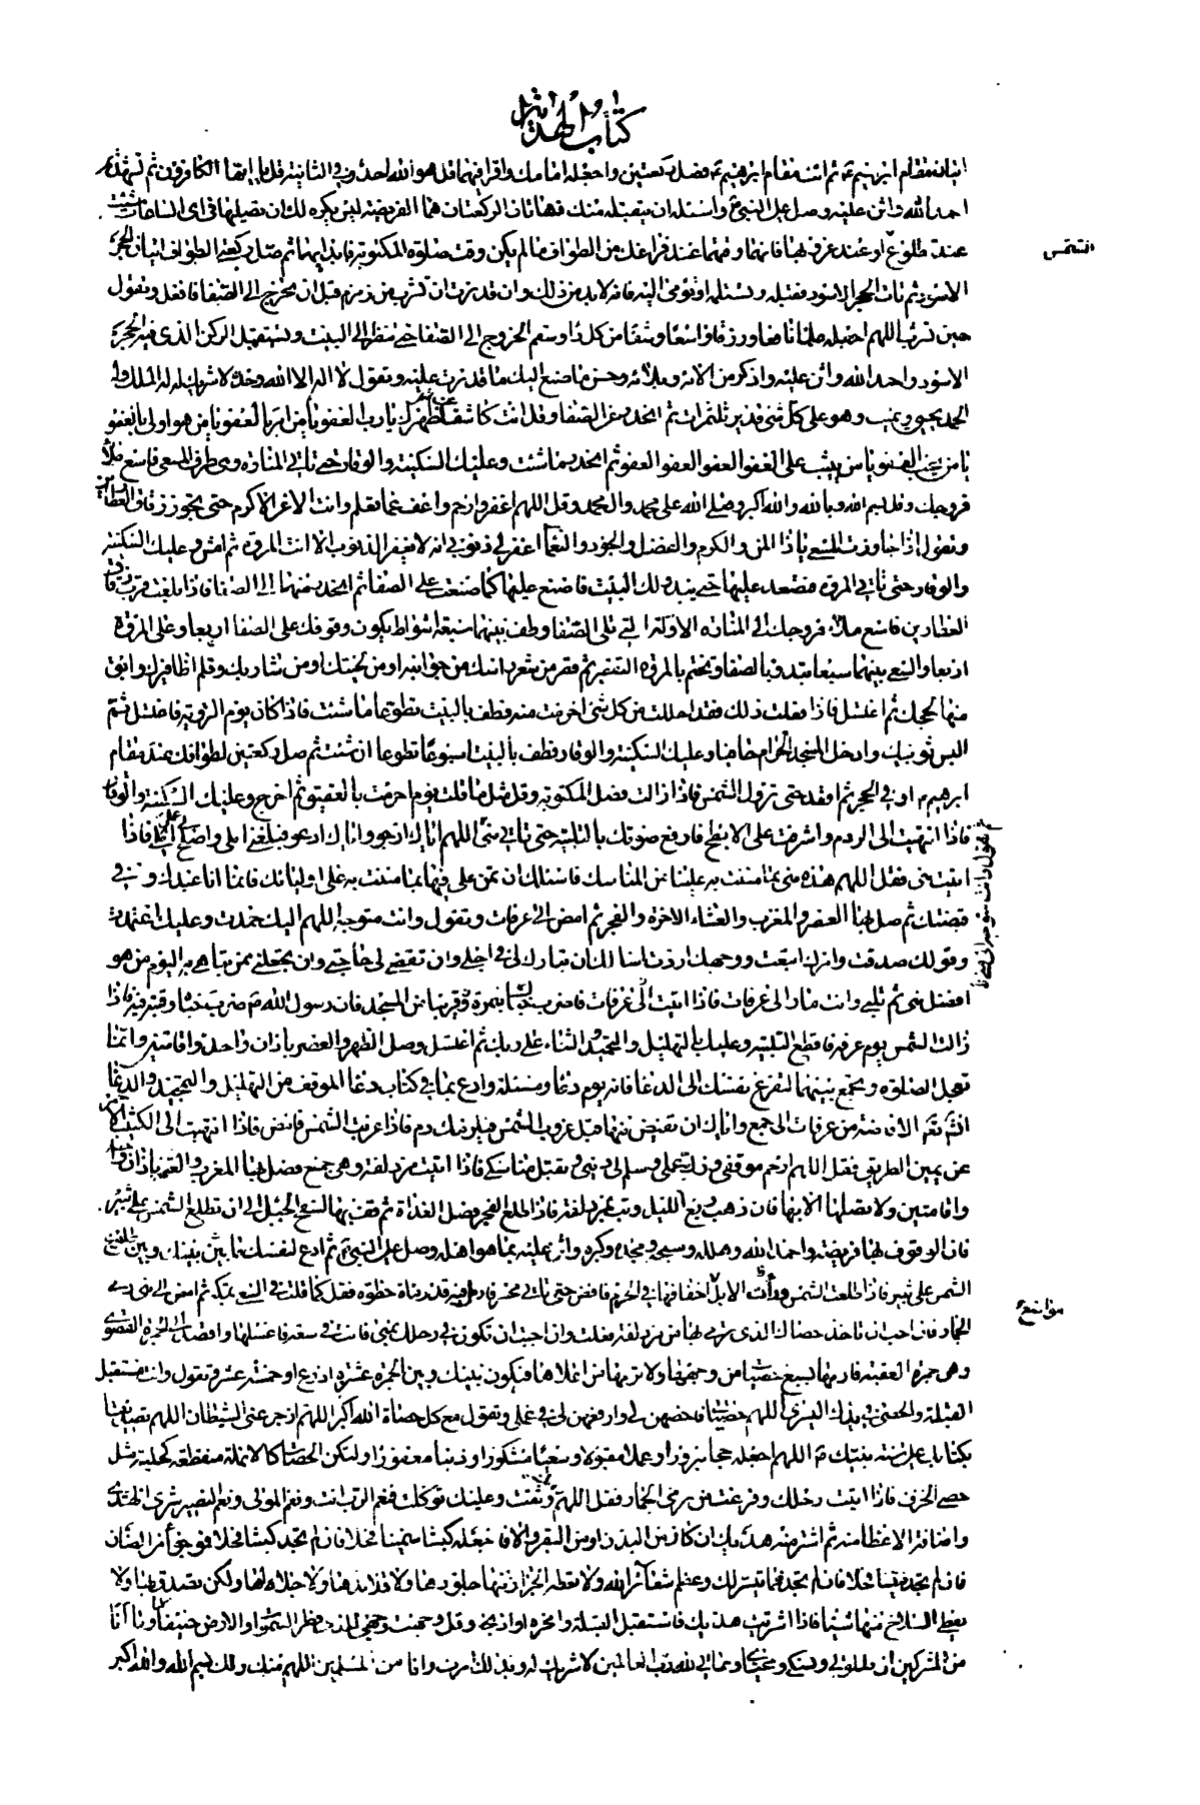 كتاب الهداية
اتيان مقام ابرهيم ع ثم ائت مقام ابرهيم ع فصل ركعتين واجعله امامك واقرا فيهما قل هو الله احد وفي الثانية قل يا ايها الكافرون ثم تشهد ثم
احمد الله واثن عليه وصل على النبي ص واسئله ان يتقبله منك فهاتان الركعتان هما الفريضة ليس يكره لك ان تصليهما في اى الساعات شئت
عند طلوع او عند غروبها فانما وقتهما عند فراغك من الطواف ما لم يكن وقت صلوة المكتوبة فابدا بها ثم صل ركعتى الطواف اتيان الحجر
الشمس
الاسود ثم تات الحجر الاسود فتقبله وتستلمه او تومى اليه فانه لابد من ذلك وان قدرت ان تشرب من زمزم قبل ان تخرج الى الصفا فافعل وتقول
حين تشرب اللهم اجعله علما نافعا ورزقا واسعا وشفا من كل دا وسقم الخروج الى الصفا حتى تنظر الى البيت وتستقبل الركن الذى فيه الحجر
الاسود واحمد الله واثن عليه واذكر من الائه وبلائه وحسن ما صنع اليك ما قدرت عليه وتقول لا اله الا الله وحده لا شريك له له الملك وله
الحمد يحيى ويميت وهو على كل شئ قدير ثلث مرات ثم انحدر عن الصفا وقل وانت كاشف عن ظهرك يا رب العفو يا من امر بالعفو يا من هو اولى بالعفو
يا من يحب العفو يا من يثيب على العفو العفو العفو العفو ثم انحدر ماشيا وعليك السكينة والوقار حتى تاتى المنارة وهى طرف المسعى فاسع ملأ
فروجك وقل بسم الله وبالله والله اكبر وصلى الله على محمد وال محمد وقل اللهم اغفر وارحم واعف عما تعلم وانت الاعز الاكرم حتى تجوز زقاق العطارين
وتقول اذا جاوزت المسعى يا ذا المن والكرم والفضل والجود والنعما اغفر لى ذنوبى انه لا يغفر الذنوب الا انت المروة ثم امش وعليك السكينة
والوقار حتى تاتى المروة فتصعد عليها حتى يبدو لك البيت فاصنع عليها كما صنعت على الصفا ثم انحدر منها الى الصفا فاذا بلغت قرب زقاق
العطارين فاسع ملأ فروجك الى المنارة الاولة التى تلى الصفا وطف بينهما سبعة اشواط يكون وقوفك على الصفا اربعا وعلى المروة
اربعا والسعى بينهما سبعا تبدء بالصفا وتختم بالمروة التقصير ثم قصر من شعر راسك من جوانبه او من لحيتك او من شاربك وقلم اظافيرك وابق
منها لحجك ثم اغتسل فاذا فعلت ذلك فقد احللت من كل شئ احرمت منه وطف بالبيت تطوعا ما شئت فاذا كان يوم التروية فاغتسل ثم
البس ثوبيك وادخل المسجد الحرام حافيا وعليك السكينة والوقار وطف بالبيت اسبوعا تطوعا ان شئت ثم صل ركعتين لطوافك عند مقام
ابرهيم ع او في الحجر ثم اقعد حتى تزول الشمس فاذا زالت فصل المكتوبة وقل مثل ما قلت يوم احرمت بالعقيق ثم اخرج وعليك السكينة والوقار
فاذا انتهيت الى الردم واشرفت على الابطح فارفع صوتك بالتلبية حتى تاتى منى
ثم تقول وانت متوجه الى منى
اللهم اياك ارجو واياك ادعو فبلغنى املى واصلح لى عملى فاذا
اتيت منى فقل اللهم هذه منى مما مننت به علينا من المناسك فاسئلك ان تمن على فيها بما مننت به على اوليائك فانما انا عبدك وفي
قبضتك ثم صل بها العصر والمغرب والعشاء الاخرة والفجر ثم امض الى عرفات وتقول وانت متوجه اللهم اليك صمدت وعليك اعتمدت
وقولك صدقت وامرك اتبعت ووجهك اردت اسالك ان تبارك لى في اجلى وان تقضى لى حاجتى وان تجعلنى ممن تباهى به اليوم من هو
افضل منى ثم تلبى وانت مار الى عرفات فاذا اتيت الى عرفات فاضرب خباك بنمرة قريبا من المسجد فان رسول الله ص ضرب خباه وقبته فيه فاذا
زالت الشمس يوم عرفة فاقطع التلبية وعليك بالتهليل والتحميد والثناء على ربك ثم اغتسل وصل الظهر والعصر باذان واحد واقامتين وانما
تعجل الصلوة وتجمع بينهما لتفرغ نفسك الى الدعا فانه يوم دعا ومسئلة وادع بما في كتاب دعا الموقف من التهليل والتمجيد والدعا
الافاضة من عرفات الى جمع واياك ان تفيض منها قبل غروب الشمس فيلزمك دم فاذا غربت الشمس فافض فاذا انتهيت الى الكثيب الاحمر
عن يمين الطريق فقل اللهم ارحم موقفى وزك عملى وسلم لى دينى وتقبل مناسكى فاذا اتيت مزدلفة وهى جمع فصل بها المغرب والعتمة باذان واحد
واقامتين ولا تصلهما الا بها فان ذهب ربع الليل وبت بمزدلفة فاذا طلع الفجر فصل الغداة ثم قف بها بسفح الجبل الى ان تطلع الشمس على ثبير
فان الوقوف بها فريضة واحمد الله وهلله وسبحه ومجده وكبره واثن عليه بما هو اهله وصل على النبي ص ثم ادع لنفسك ما بينك وبين طلوع
الشمس على ثبير فاذا طلعت الشمس ورأت الابل اخفافها في الحرم فافض حتى تاتى وادى محسر فارمل فيه قدر مائة خطوة فقل كما قلت في السعى بمكة ثم امض الى منى رمى
مواضع
الجمار فان احببت ان تاخذ حصاك الذى ترمى بها من مزدلفة فعلت وان احببت ان تكون في رحلك بمنى فانت في سعة فاغسلها واقصد الى الجمرة القصوى
وهى جمرة العقبة فارمها بسبع حصيات من وجهها ولا ترمها من اعلاها ويكون بينك وبين الجمرة عشرة اذرع او خمسة عشر وتقول وانت مستقبل
القبلة والحصى في يدك اليسرى اللهم هذه حصياتى فاحصهن لى وارفعهن لى في عملى وتقول مع كل حصاة الله اكبر اللهم ازجر عنى الشيطان اللهم تصديقا
بكتابك وعلى سنة نبيك ص اللهم اجعله حجا مبرورا وعملا مقبولا وسعيا مشكورا وذنبا مغفورا ولتكن الحصاة كالانملة منقطة كحلية مثل
حصى الخزف فاذا اتيت رحلك وفرغت من رمى الجمار فقل اللهم بك وثقت وعليك توكلت فنعم الرب انت ونعم المولى ونعم النصير شرى الهدى
ثم اشتر منه هديك ان كان من البدن او من البقر والا فاجعله كبشا سمينا فحلا فان لم تجد كبشا فحلا فموجوءا من الضان
فان لم تجد فتيسا فحلا فان لم تجد فما تيسر لك وعظم شعائر الله ولا تعط الجزار منها جلودها ولا قلائدها ولا جلالها ولكن تصدق بها ولا
تعط السلاخ منها شيئا فاذا اشتريت هديك فاستقبل القبلة وانحره او اذبحه وقل وجهت وجهى للذى فطر السموات والارض حنيفا مسلما وما انا
من المشركين ان صلوتى ونسكى ومحياى ومماتى لله رب العالمين لا شريك له وبذلك امرت وانا من المسلمين اللهم منك ولك بسم الله والله اكبر